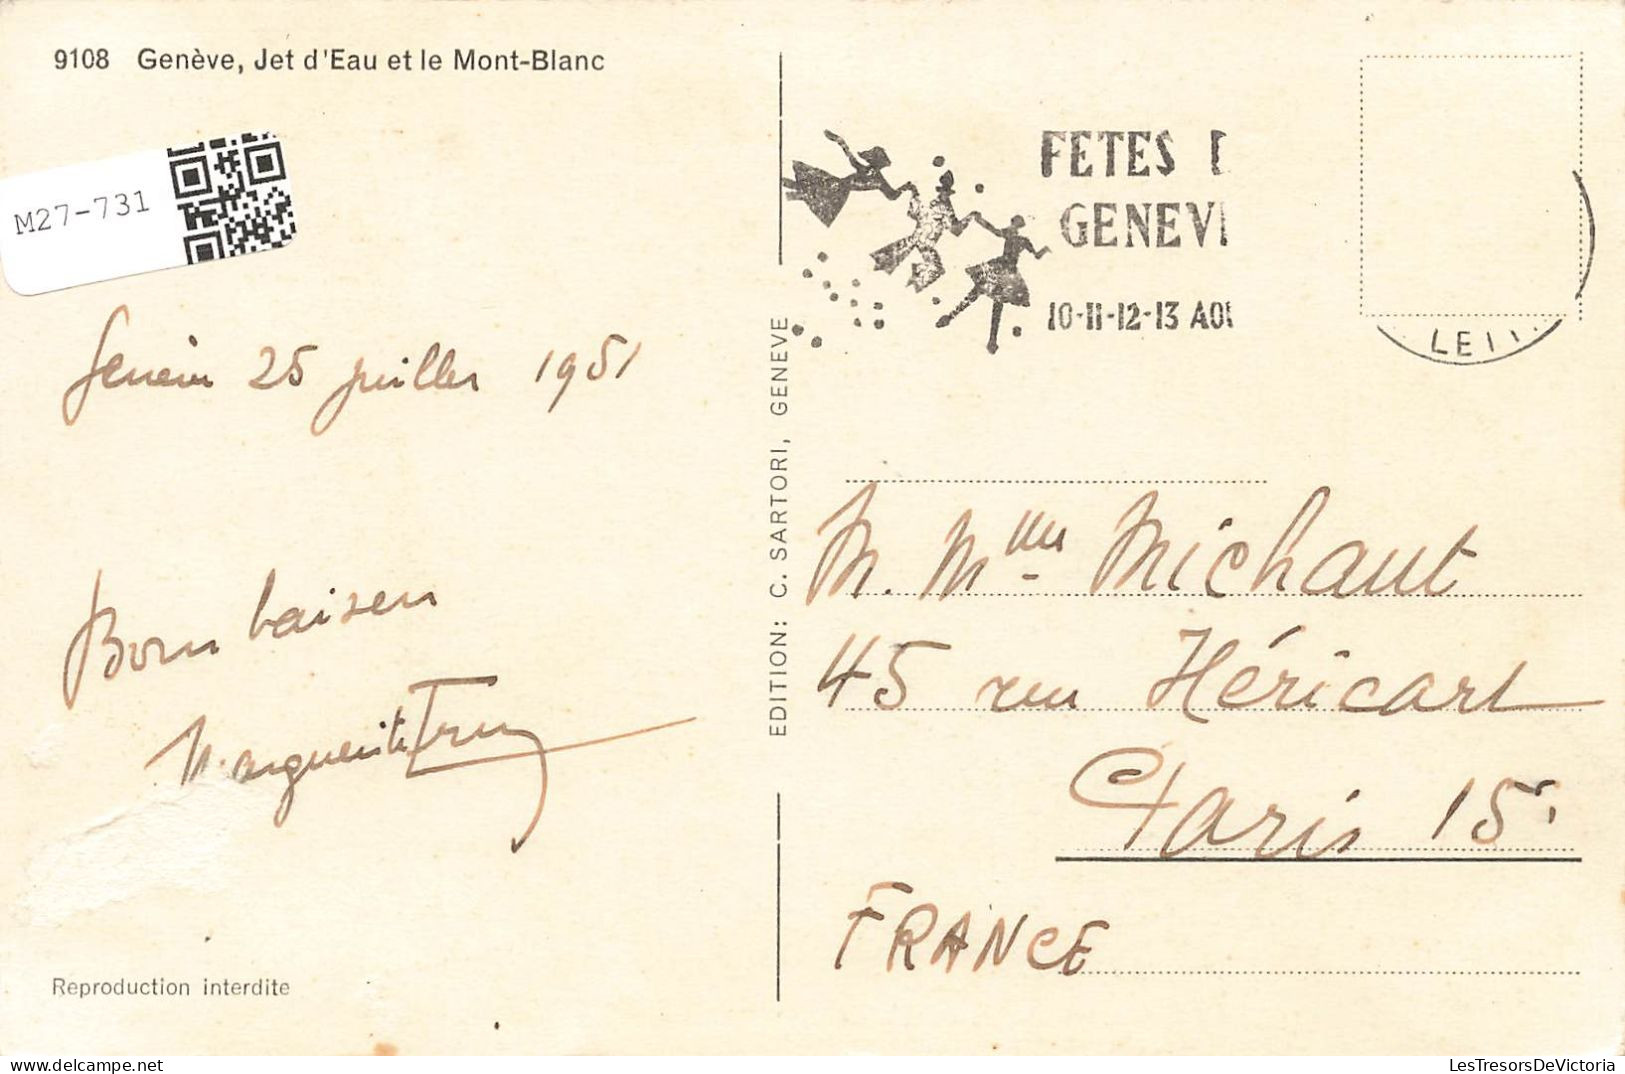 9108 Genève, Jet d'Eau et le Mont-Blanc
M27-731
Genève 25 juillet 1951
Bons baisers
Marguerite
Reproduction interdite
EDITION: C. SARTORI, GENEVE
FETES D
GENEVE
10-11-12-13 AOU
M. Mlles Michaut
45 rue Héricart
Paris 15e
FRANCE
LesTresorsDeVictoria